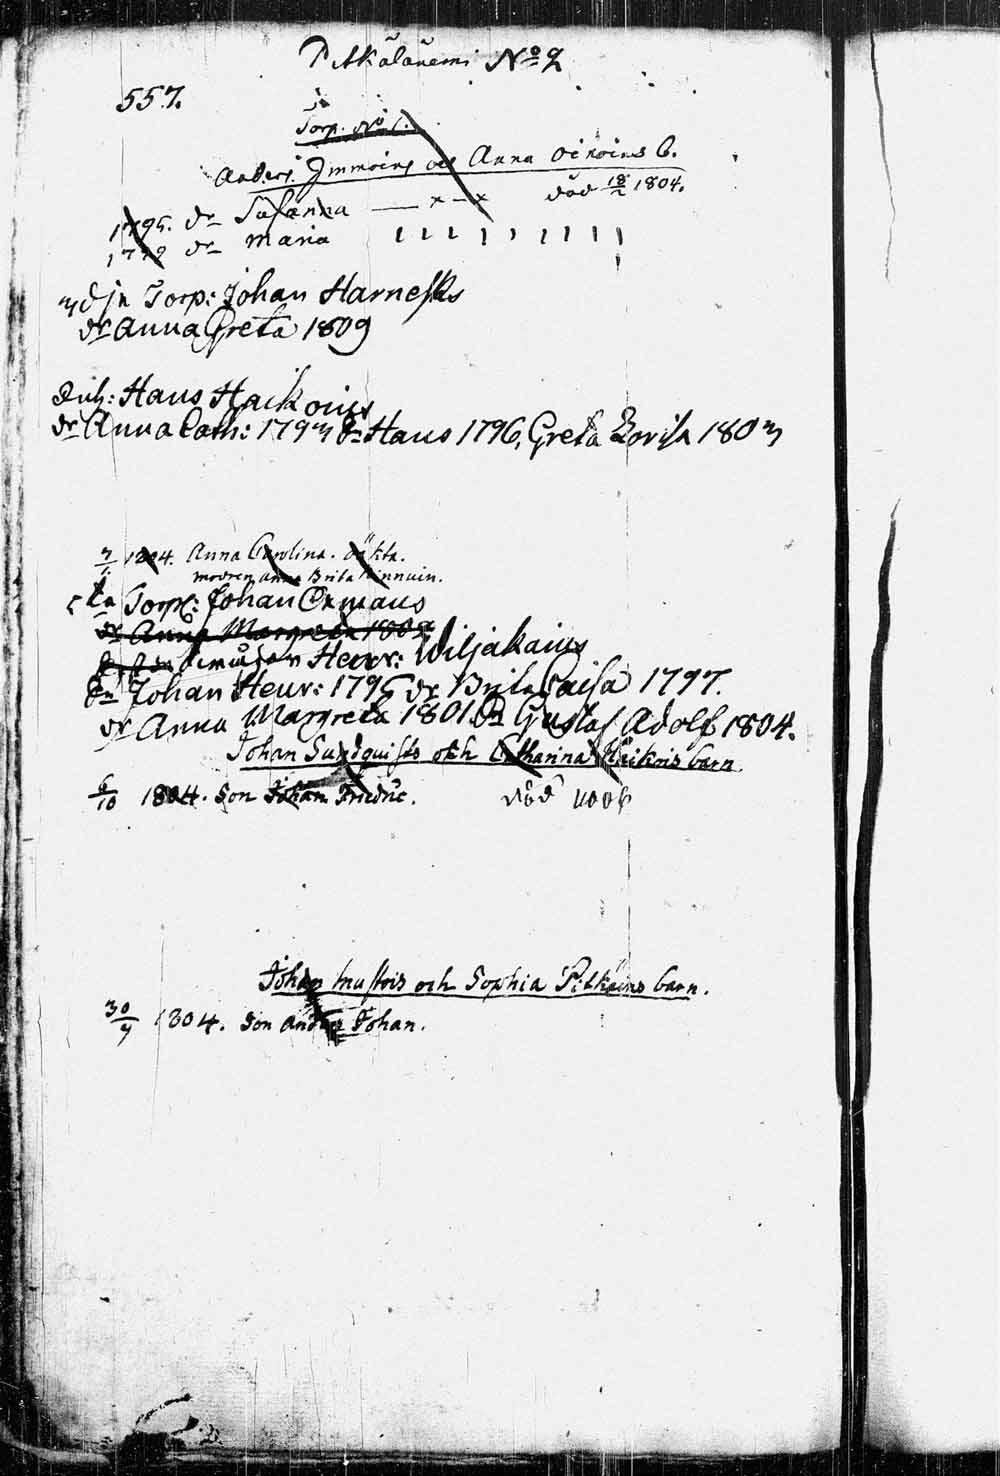 Pitkälänemi No 2
557.
Torp. No 1.
Anders Immoins och Anna Oinoins b.
1795. dr Susanna — x – x död 18/2 1804.
dr Maria
Torp: Johan Harnesks
dr Anna Greta 1809
Inh: Hans Haikoins
dr Anna Cath: 1793 Hans 1796, Greta Lovisa 1803
1804. Anna Carolina. oäkta.
modren Anna Brita Kinnuin.
Torp: Johan
dr Anna Margreta
Henr: Wiljakains
Johan Henr: 1795 dr Brita Caisa 1797.
dr Anna Margreta 1801. Gustaf Adolf 1804.
Johan Sundquists och Catharina Haikois barn.
6/10 1804. Son Johan Fredric. död
Johan Mustois och Sophia Pitkäins barn.
30/7 1804. Son Anders Johan.